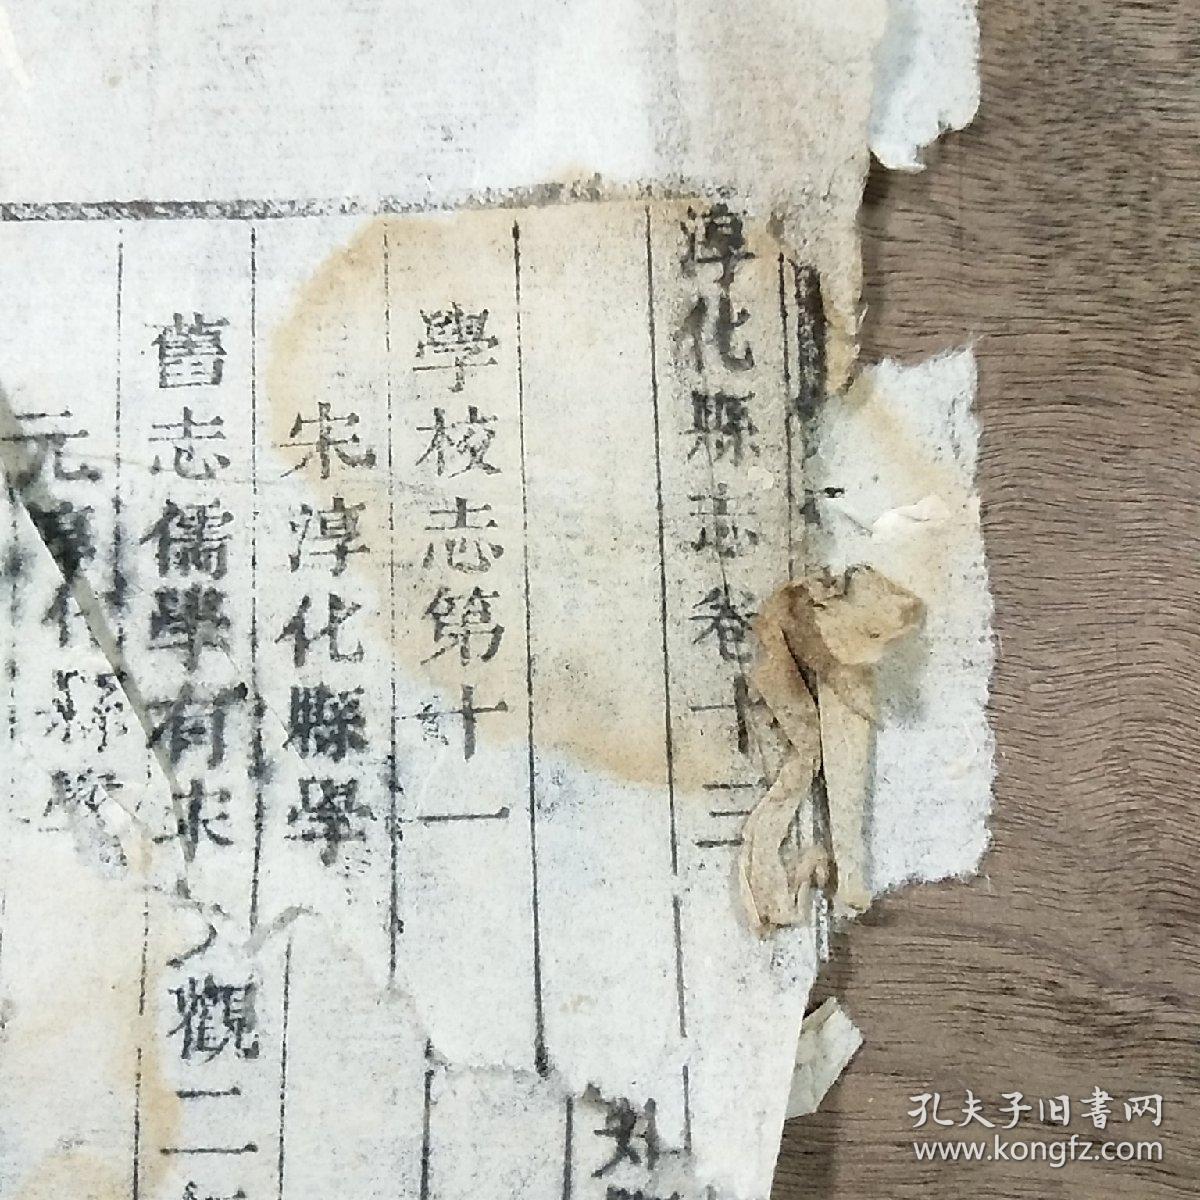 淳化縣志卷十三
學校志第十一
宋淳化縣學
舊志儒學有宋大觀二
元淳化縣學
孔夫子旧書网
www.kongfz.com